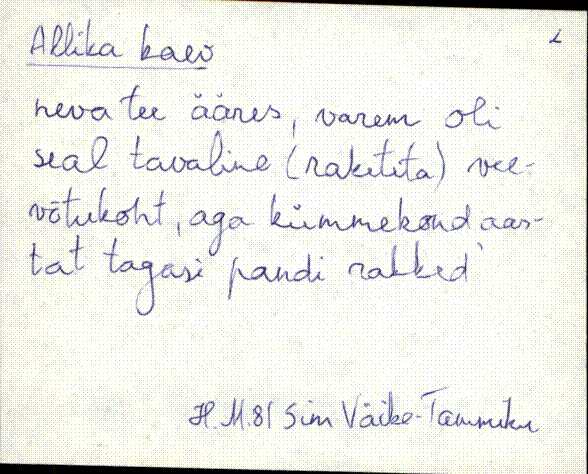 L
Allika kaev
neva tee ääres, varem oli
seal tavaline (raketita) vee-
võtukoht, aga kümmekond aas-
tat tagasi pandi rakked
H. M. 81 Sim Väike-Tammiku